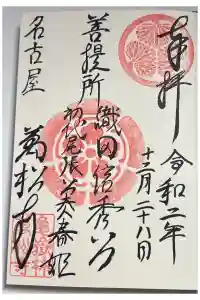 奉拝
令和二年
十二月二十八日
織田信秀公
菩提所
初代尾張
英春姫
名古屋
萬松寺